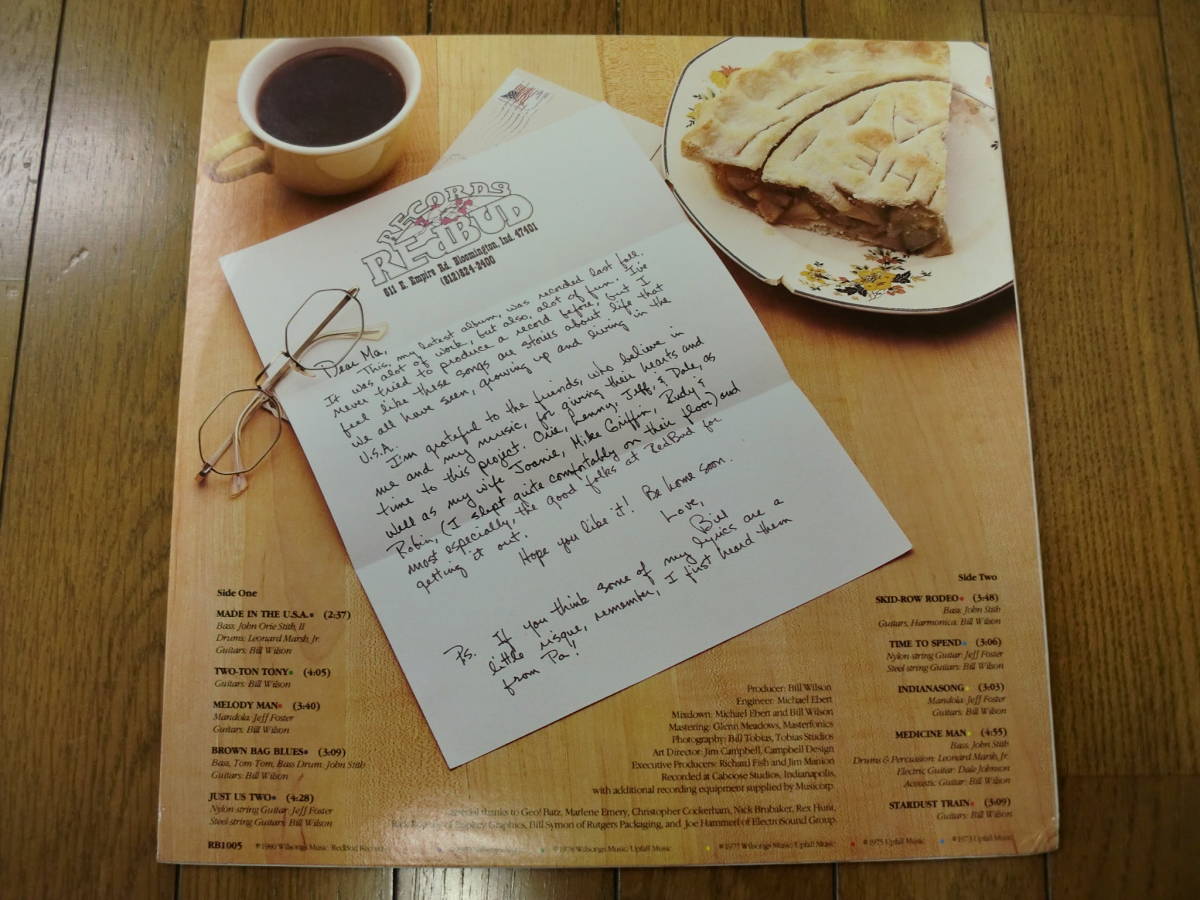 RECORDS
REDBUD
611 E. Empire Rd. Bloomington, Ind. 47401
(812)824-2400
Dear Ma,
This, my latest album, was recorded last fall.
It was alot of work, but also, alot of fun. I've
never tried to produce a record before, but I
feel like these songs are stories about life that
we all have seen, growing up and living in the
U.S.A.
I'm grateful to the friends, who believe in
me and my music, for giving their hearts and
time to this project. Orie, Lenny, Jeff, & Dale, as
well as my wife Joanie, Mike Griffin, Rudy &
Robin, (I slept quite comfortably on their floor) and
most especially, the good folks at RedBud for
getting it out.
Hope you like it! Be home soon.
Love,
Bill
Ps. If you think some of my lyrics are a
little risque, remember, I just heard them
from Pa!
Side One
MADE IN THE U.S.A. (2:37)
Bass: John Orie Stith, II
Drums: Leonard Marsh, Jr.
Guitars: Bill Wilson
TWO-TON TONY (4:05)
Guitars: Bill Wilson
MELODY MAN (3:40)
Mandola: Jeff Foster
Guitars: Bill Wilson
BROWN BAG BLUES (3:09)
Bass, Tom Tom, Bass Drum: John Stith
Guitars: Bill Wilson
JUST US TWO (4:28)
Nylon-string Guitar: Jeff Foster
Steel-string Guitars: Bill Wilson
Side Two
SKID-ROW RODEO (3:48)
Bass: John Stith
Guitars, Harmonica: Bill Wilson
TIME TO SPEND (3:06)
Nylon-string Guitar: Jeff Foster
Steel-string Guitars: Bill Wilson
INDIANASONG (3:03)
Mandola: Jeff Foster
Guitars: Bill Wilson
MEDICINE MAN (4:55)
Bass: John Stith
Drums & Percussion: Leonard Marsh, Jr.
Electric Guitar: Dale Johnson
Acoustic Guitar: Bill Wilson
STARDUST TRAIN (3:09)
Guitars: Bill Wilson
Producer: Bill Wilson
Engineer: Michael Ebert
Mixdown: Michael Ebert and Bill Wilson
Mastering: Glenn Meadows, Masterfonics
Photography: Bill Tobias, Tobias Studios
Art Director: Jim Campbell, Campbell Design
Executive Producers: Richard Fish and Jim Manion
Recorded at Caboose Studios, Indianapolis,
with additional recording equipment supplied by Musicorp.
thanks to Geof Batz, Marlene Emery, Christopher Cockerham, Nick Brubaker, Rex Hunt,
Graphics, Bill Symon of Rutgers Packaging, and Joe Hammerl of ElectroSound Group.
RB1005 1980 Wilsongs Music 1978 Wilsongs Music/Upfall Music 1977 Wilsongs Music/Upfall Music 1975 Upfall Music 1973 Upfall Music